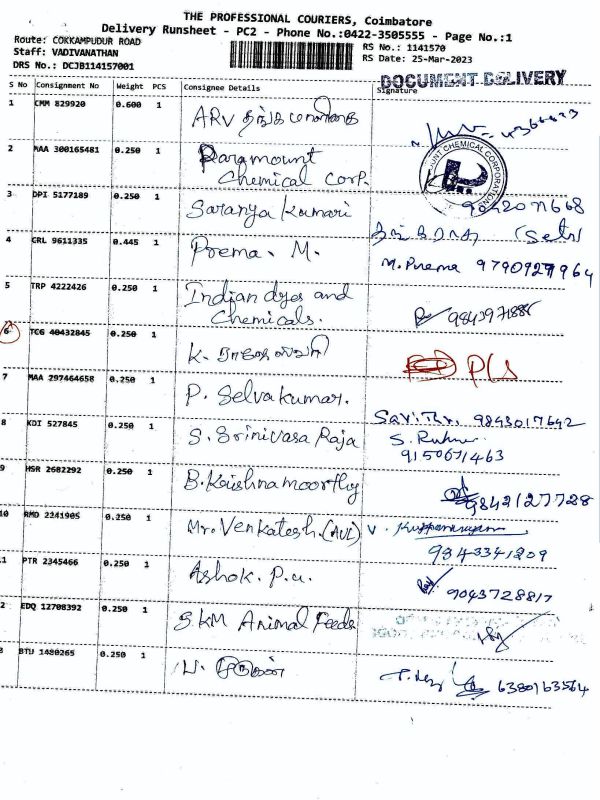 THE PROFESSIONAL COURIERS, Coimbatore
Delivery Runsheet - PC2 - Phone No.:0422-3505555 - Page No.:1
Route: COKKAMPUDUR ROAD
RS No.: 1141570
Staff: VADIVANATHAN
RS Date: 25-Mar-2023
DRS No.: DCJB114157001
DOCUMENT DELIVERY
S No Consignment No Weight PCS Consignee Details Signature
1 CMM 829920 0.600 1 ARV தங்க மாளிகை
2 MAA 300165481 0.250 1 Paramount
Chemical Corp.
3 DPI 5177189 0.250 1 Saranya Kumari 9042071668
4 CRL 9611335 0.445 1 Prema. M. M. Prema 9790929964
5 TRP 4222426 0.250 1 Indian dyes and
Chemicals. 9843971885
6 TCG 40432845 0.250 1 K. PCS
7 MAA 297464658 0.250 1 P. Selvakumar. 9843017642
8 KDI 527845 0.250 1 S. Srinivasa Raja S.
9150671463
9 HSR 2682292 0.250 1 B. Krishnamoorthy 9842127728
10 RMD 2241905 0.250 1 Mr. Venkatesh. (AVL) V.
9343341209
11 PTR 2345466 0.250 1 Ashok. P.U. 9043728817
12 EDQ 12708392 0.250 1 SKM Animal Feeds
13 BTU 1480265 0.250 1 6380163564